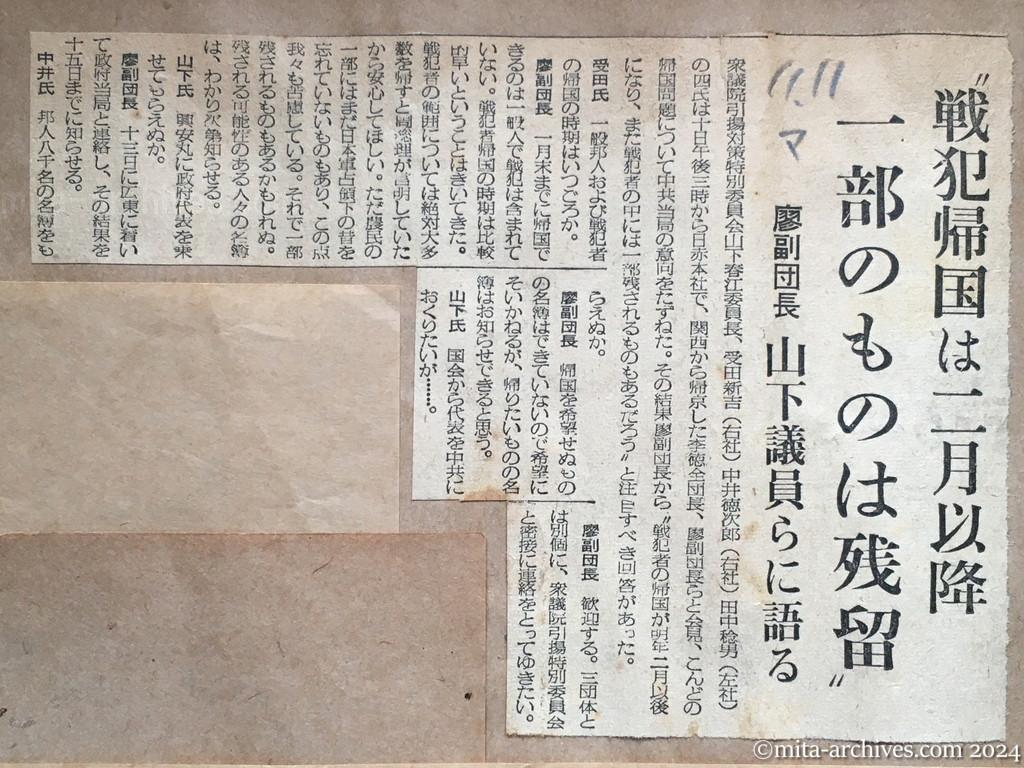 "戦犯帰国は二月以降
一部のものは残留"
廖副団長 山下議員らに語る
11.11
マ
衆議院引揚対策特別委員会山下春江委員長、受田新吉(右社)中井徳次郎(右社)田中稔男(左社)
の四氏は十日午後三時から日赤本社で、関西から帰京した李徳全団長、廖副団長らと会見、こんどの
帰国問題について中共当局の意向をたずねた。その結果廖副団長から"戦犯者の帰国が明年二月以後
になり、また戦犯者の中には一部残されるものもあるだろう"と注目すべき回答があった。
受田氏 一般邦人および戦犯者
の帰国の時期はいつごろか。
廖副団長 一月末までに帰国で
きるのは一般人で戦犯は含まれて
いない。戦犯者帰国の時期は比較
的早いということはきいてきた。
戦犯者の範囲については絶対大多
数を帰すと周総理が言明していた
から安心してほしい。ただ農民の
一部にはまだ日本軍占領下の昔を
忘れていないものもあり、この点
我々も苦慮している。それで一部
残されるものもあるかもしれぬ。
残される可能性のある人々の名簿
は、わかり次第知らせる。
山下氏 興安丸に政府代表を乗
せてもらえぬか。
廖副団長 十三日に広東に着い
て政府当局と連絡し、その結果を
十五日までに知らせる。
中井氏 邦人八千名の名簿をも
らえぬか。
廖副団長 帰国を希望せぬもの
の名簿はできていないので希望に
そいかねるが、帰りたいものの名
簿はお知らせできると思う。
山下氏 国会から代表を中共に
おくりたいが……。
廖副団長 歓迎する。三団体と
は別個に、衆議院引揚特別委員会
と密接に連絡をとってゆきたい。
©mita-archives.com 2024